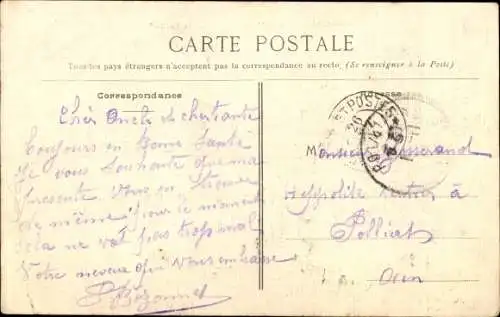 CARTE POSTALE
Tous les pays étrangers n'acceptent pas la correspondance au recto. (Se renseigner à la Poste)
Correspondance
Cher Oncle et chertante
Toujours en bonne santé
Je vous souhaite que ma
presente vous en
de même pour le moment
cela ne vat pas trop mal
Votre neveu qui vous embrasse
POSTES
Monsieur
Hippolite rentier à
Polliat
Ain